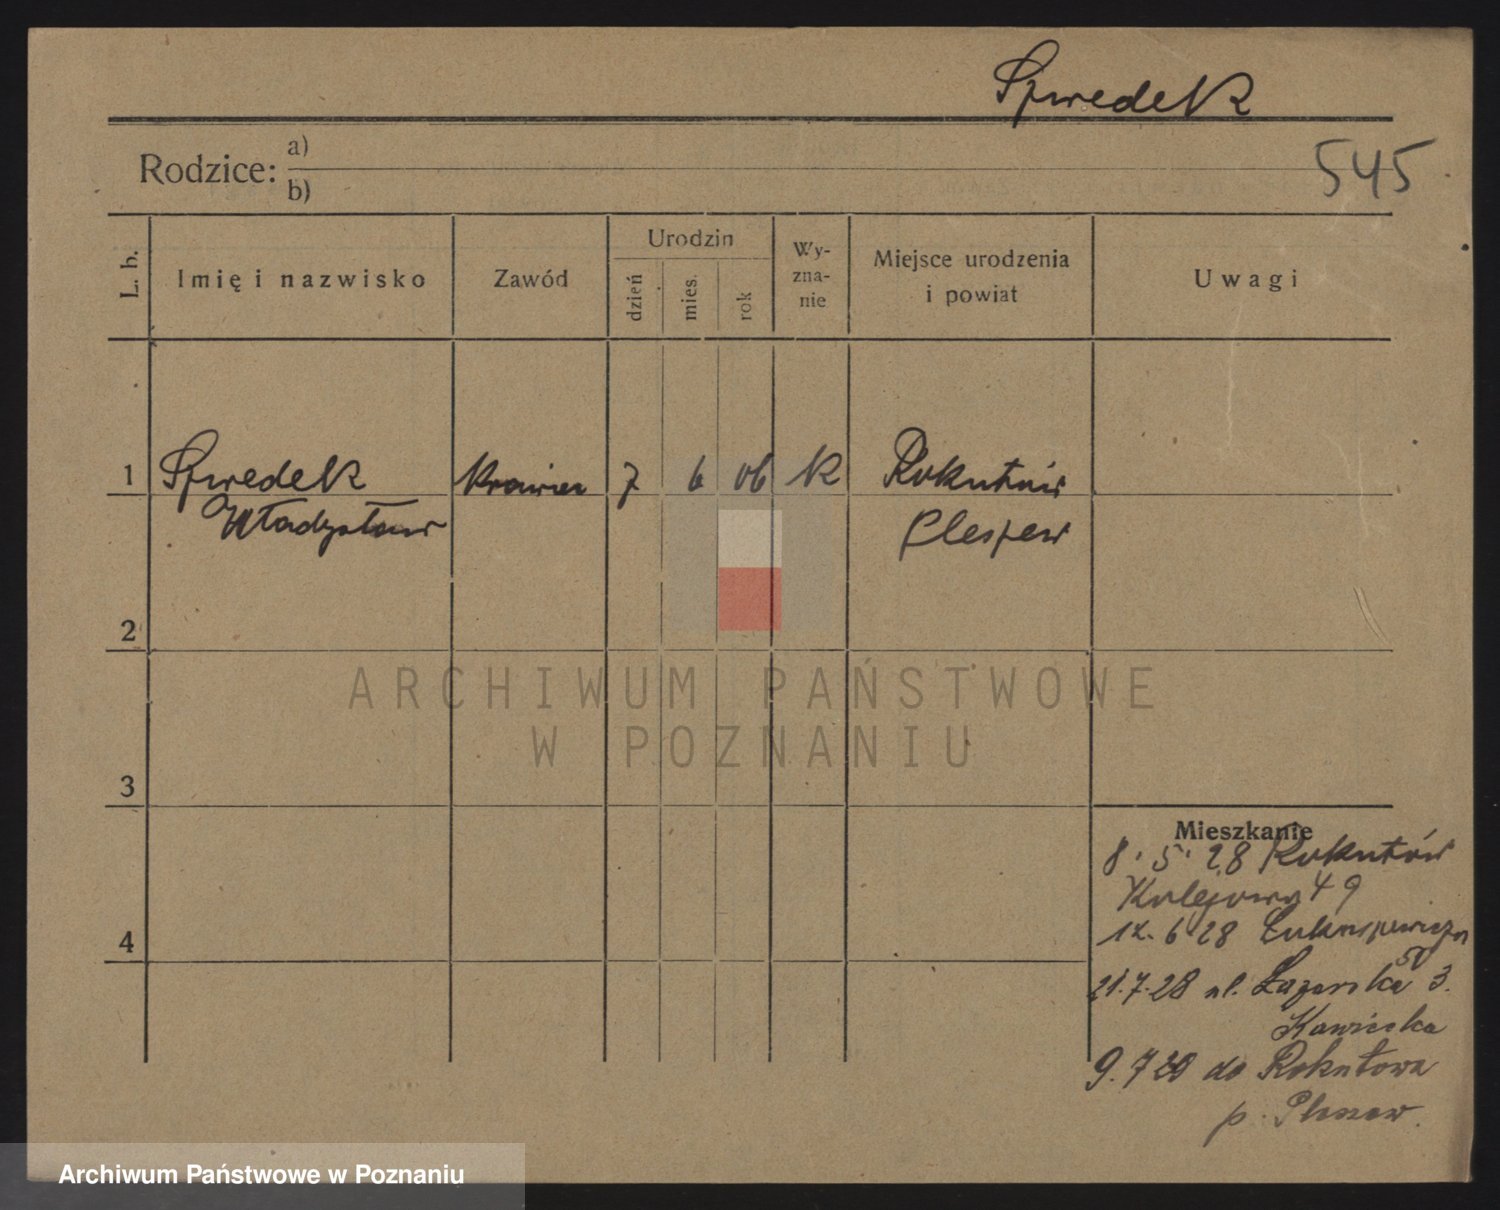 Szwedek
545
Rodzice: a)
b)
L. b.
Imię i nazwisko
Zawód
Urodzin
dzień
mies.
rok
Wy-
zna-
nie
Miejsce urodzenia
i powiat
Uwagi
1 Szwedek krawiec 7 6 06 K Rokutów
Władysław Pleszew
2
ARCHIWUM PAŃSTWOWE
W POZNANIU
3
Mieszkanie
8. 5. 28 Rokutów
Kolejowa 49
4
12. 6 28 Łukaszewicza
21.7.28 ul. Łazarska 3.
Kawiecka
9. 7 29 do Rokutowa
p. Pleszew.
Archiwum Państwowe w Poznaniu